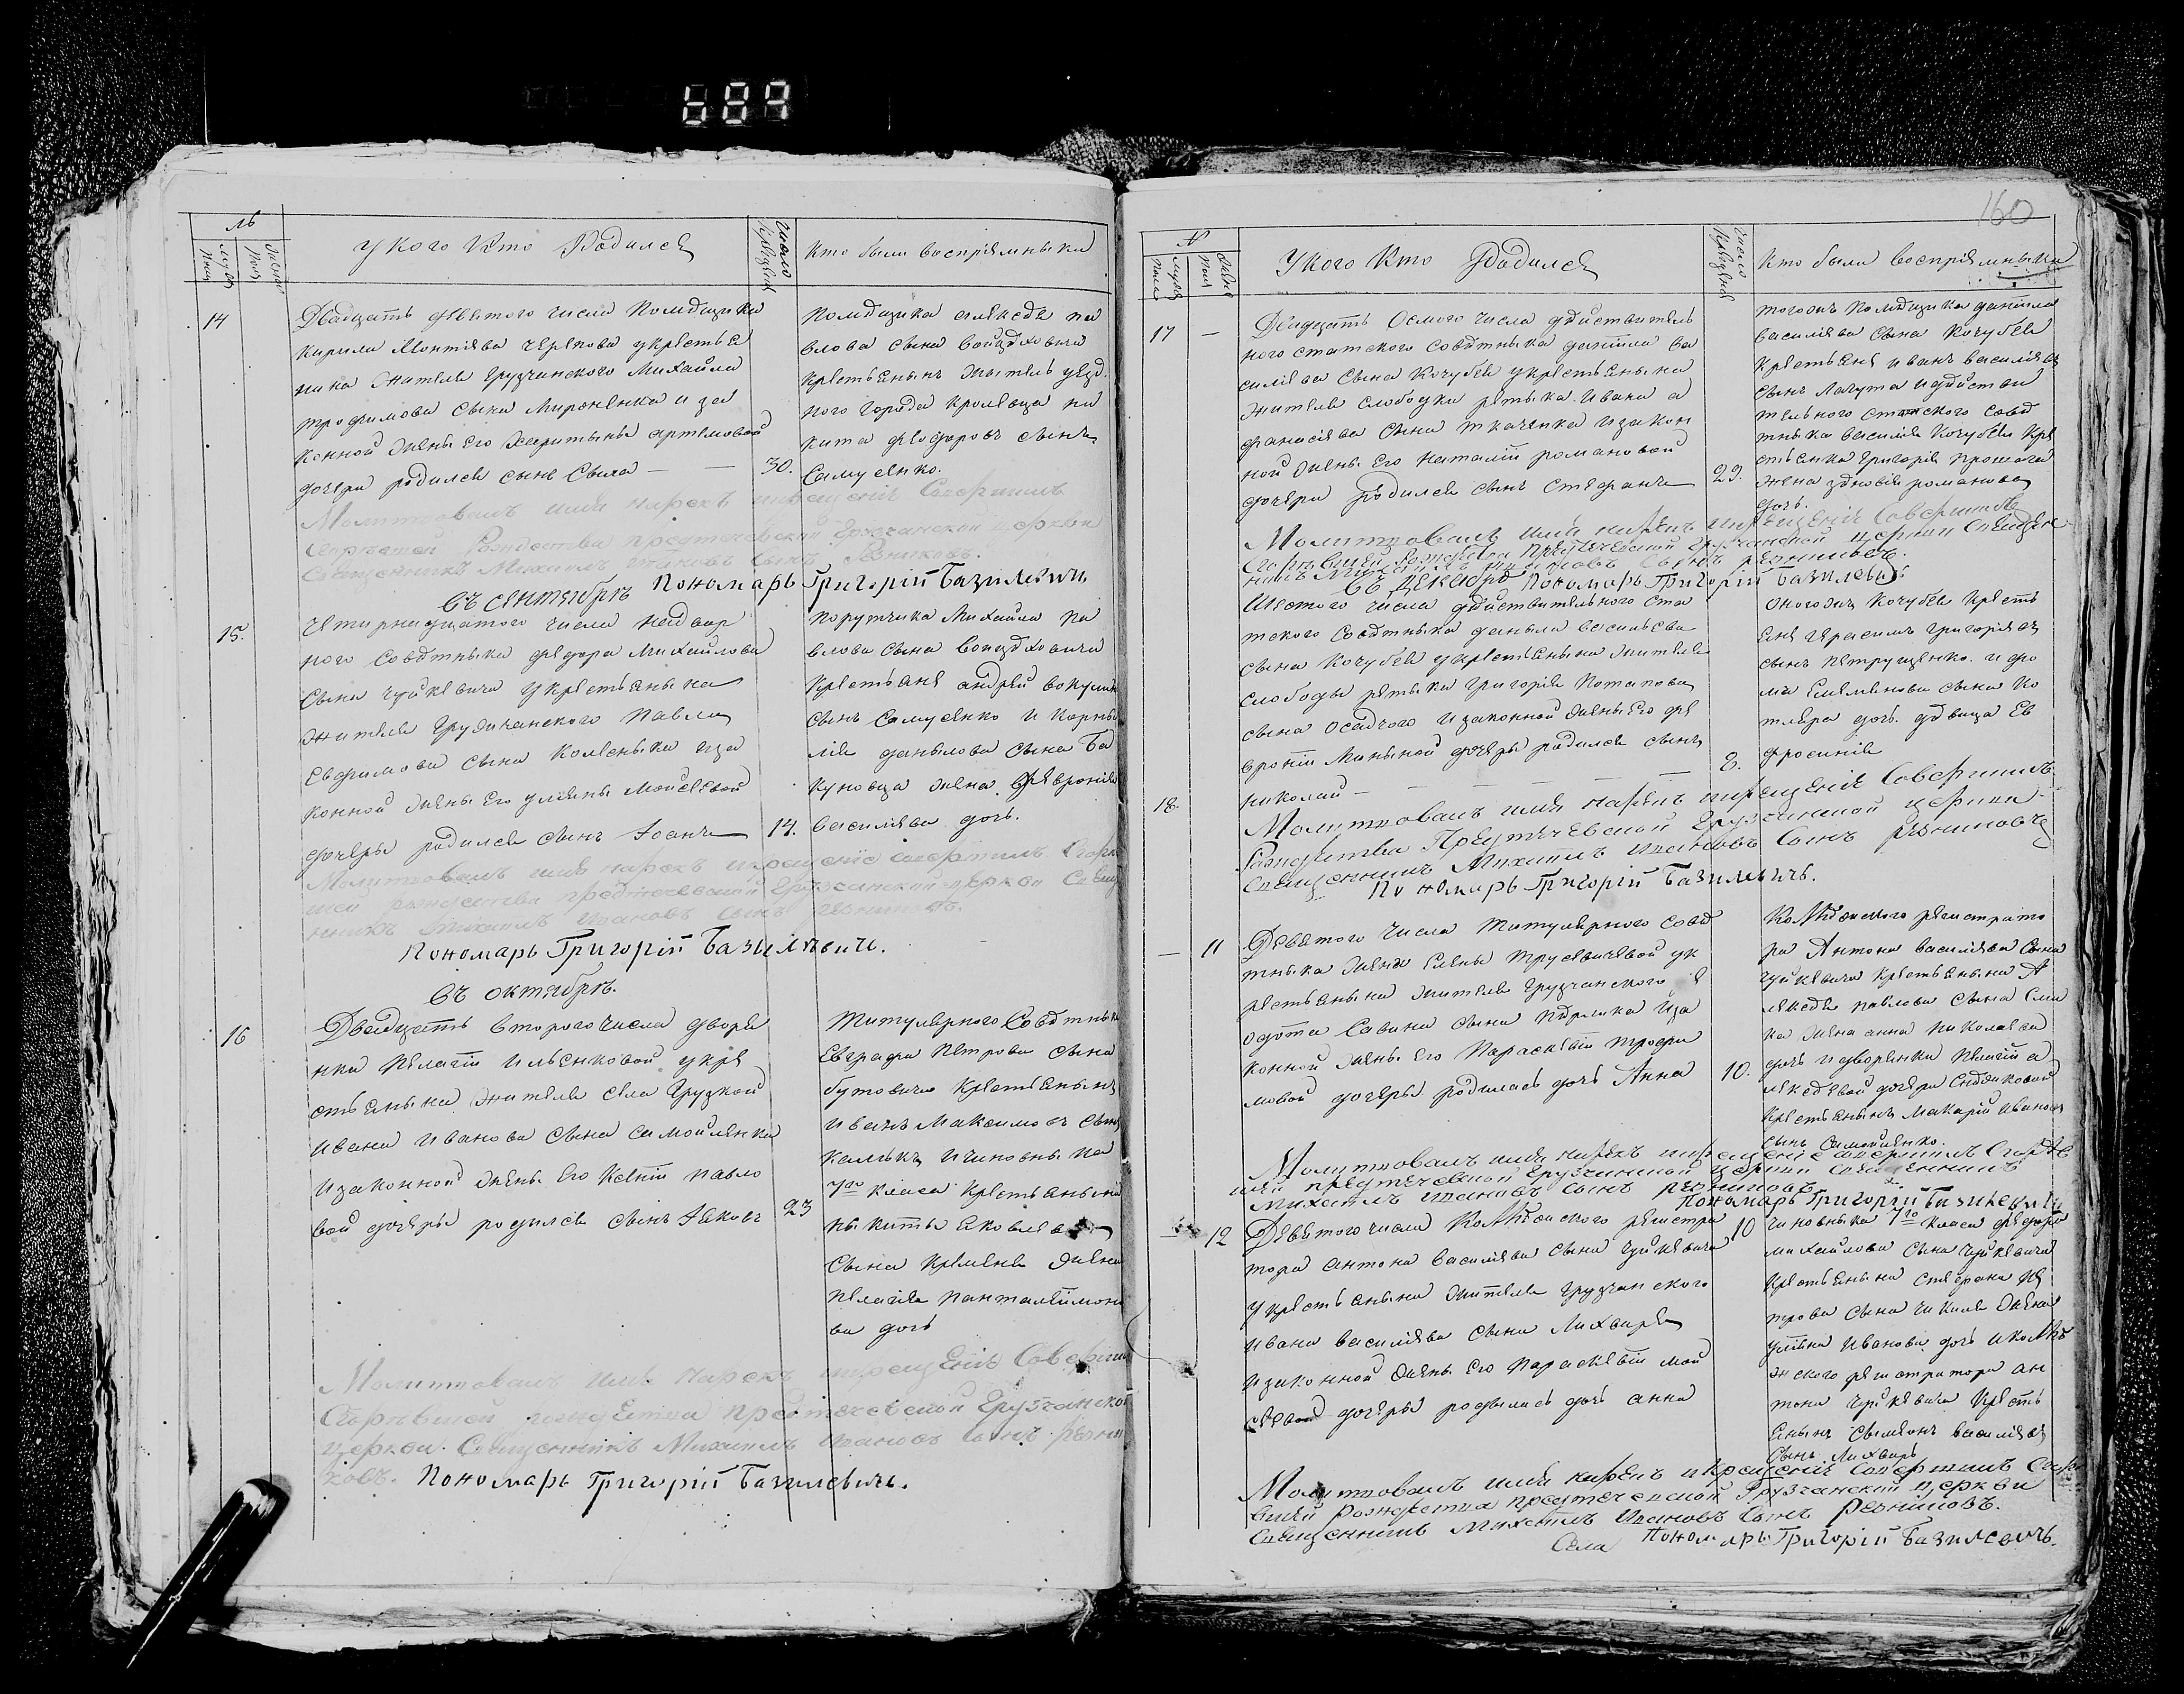 689
№
Мужеск
пола
Женск
пола
У кого кто Родился
Число
Крещения
Кто были восприемники
14
Двадцать девятого числа Помещика
кирила Монтиева черепова укрестья
нина жителя грузчанского Михайла
трофимова сына Мироненка и за
конной жены его Харитины артемовой
дочери родился сынъ Сава — — 30.
Помещика алексея па
влова сына войцеховича
крестьянинъ житель уезд
ного города кролевца ни
кита феодоровъ сынъ
Самусенко.
Молитвовалъ имя нарекъ и крещение Совершилъ
Сгоревшей Рождества предтечевской грузчанской церкви
Священникъ Михаилъ Ивановъ сынъ Резниковъ.
Пономарь Григорій Базилевичъ
въ сентябрѣ
15.
четырнадцатого числа надвор
ного советника федора Михайлова
сына чуйкевича укрестьянина
жителя грузчанского павла
Евфимова сына Коленика и за
конной жены его улияны Мойсеевой
дочеры родился сынъ Іоанъ 14.
порутчика Михайла па
влова сына войцеховича
крестьяне андрей
сынъ Самусенко и корни
лия данилова сына Ба
куновца жена Феврония
василиева дочь.
Молитвовалъ имя нарекъ и крещение совершилъ Сгорев
шей рождества предтечевской Грузчанской церкви Свяще
нникъ Михаилъ Ивановъ сынъ Резниковъ.
Пономарь Григорій Базилѣвичъ.
въ октябрѣ.
16
Двадцать второго числа дворя
нки Пелагіи ильенковой укре
стьянина жителя села Грузкой
ивана иванова сына самойленка
и законной жены его Ксеніи павло
вой дочеры родился сынъ Іаковъ 23
титулярного Советника
Евграфа Петрова сына
бутовича крестьянинъ
иванъ максимовъ сынъ
и чиновника
7го класа крестьянина
никиты яковлева
сына кременя жена
пелагия панталеймоно
ва дочь
Молитвовалъ имя нарекъ крещение Соверши
Сгоревшей рождества предтечевской Грузчанской
церкви. Священникъ Михаилъ Ивановъ сынъ Резни
ковъ. Пономарь Григорій Базилевичъ.
160
№
Мужеск
пола
Женс
пола
У кого Кто Родился
Число
Крещения
Кто были восприемники
17 —
Двадцать Осмого числа действитель
ного статского советника данила ва
силиева сына Кочубея укрестьянина
жителя слободки ретика ивана а
фанасиева сына ткаченка и закон
ной жены его Наталіи романовой
дочери родился сынъ Стефанъ 29.
тогожъ помещика данила
василиева сына кочубея
крестьяне иванъ василиевъ
сынъ Лагута и действи
тельного статского сове
тника василия кочубея кре
стьянка григория
жена зиновия романова
дочь.
Молитвовалъ имя нарекъ и крещение Совершилъ
Сгоревшей Рождества Предтечевской Грузчанской церкви Священ
никъ Михаилъ Ивановъ Сынъ Резниковъ.
въ декабрѣ Пономарь Григорій Базилевичъ.
18.
Шестого числа действительного ста
тского Советника данила василиева
сына Кочубея укрестьянина жителя
слободы ретика григория потапова
сына осадчого и законной жены его фе
вроніи Мининой дочеры родился сынъ
николай — — — — 8.
оногожъ кочубея кресть
яне герасимъ григориевъ
сынъ петрущенко. и фо
ма Семенова сына ко
тляра дочь девица Ев
фросиния
Молитвовалъ имя нарекъ и крещение Совершилъ
Рождества Предтечевской Грузчанской церкви
Священникъ Михаилъ Ивановъ Сынъ Резниковъ
Пономарь Григорій Базилевичъ.
— 11
Девятого числа титулярного сове
тника жены Елены трусевичевой ук
рестьянина жителя грузчанского Ѳ
одота Савина сына и за
конной жены его Параскевіи трофи
мовой дочеры родилась дочь Анна 10.
Колежского регистрато
ра Антона василиева сына
чуйкевича крестьянина А
лексея павлова сына
жена анна николаева
дочь и дворянки пелагіи а
лексеевой дочери
крестьянинъ макарій ивановъ
сынъ Самойленко.
Молитвовалъ имя нарекъ и крещение совершилъ Сгорев
шей предтечевской Грузчанской церкви священникъ
Михаилъ Ивановъ сынъ Резниковъ
Пономарь Григорій Базилевичъ
— 12
Девятого числа Колежского регистра
тора антона василиева сына чуйкевича 10
укрестьянина жителя грузчанского
ивана василиева сына Лихваря
и законной жены его параскевіи мой
сеевой дочеры родылась дочь анна
чиновника 7го класа федора
михайлова сына чуйкевича
крестьянина стефана пе
трова сына жена
улияна иванова дочь и коле
жского регистратора ан
тона чуйкевича кресть
янинъ Симеонъ василиевъ
сынъ Лихварь
Молитвовалъ имя нарекъ и крещение совершилъ Сгоре
вшей рождества предтечевской Грузчанской церкви
Священникъ Михаилъ Ивановъ Сынъ Резниковъ.
Села Пономарь Григорій Базилевичъ.